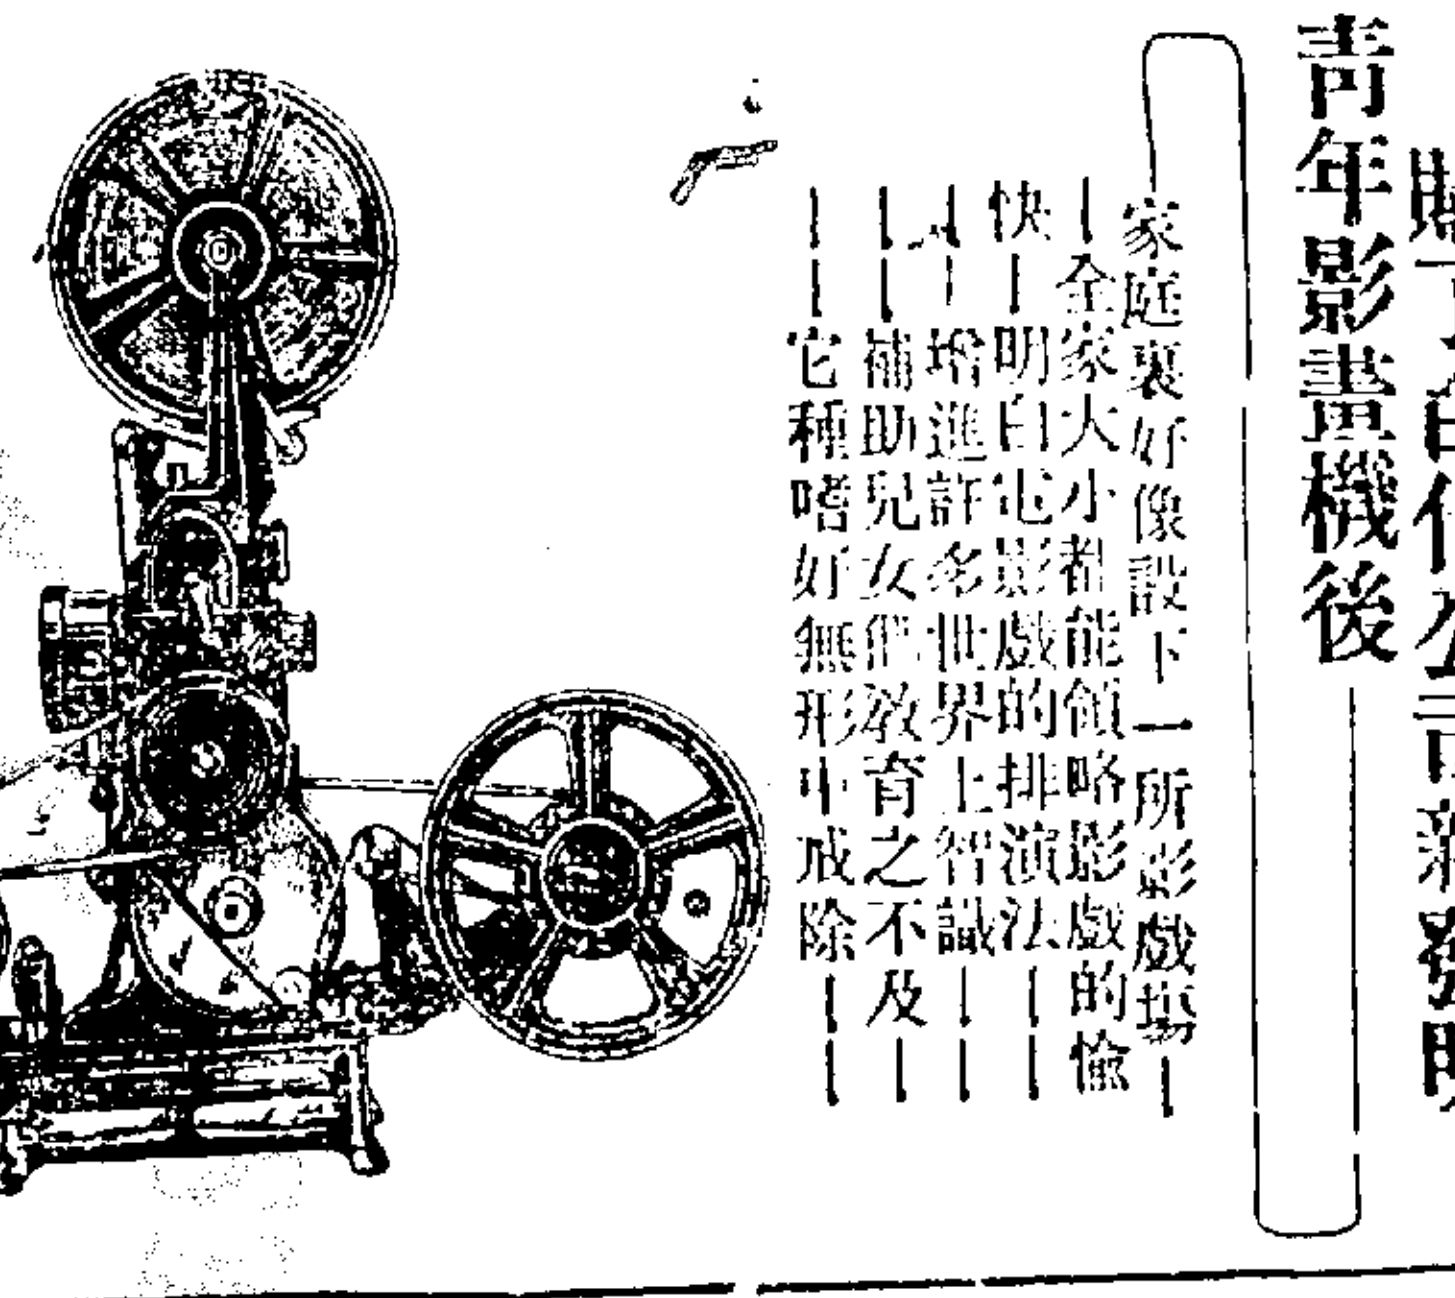 青年影畫機後
家庭裏好像設下一所影戲塲—
—全家大小都能領略影戲的愉
快—明白电影戲的排演法——
——增進許多世界上智識——
——補助兒女們教育之不及—
——它種嗜好無形中戒除——